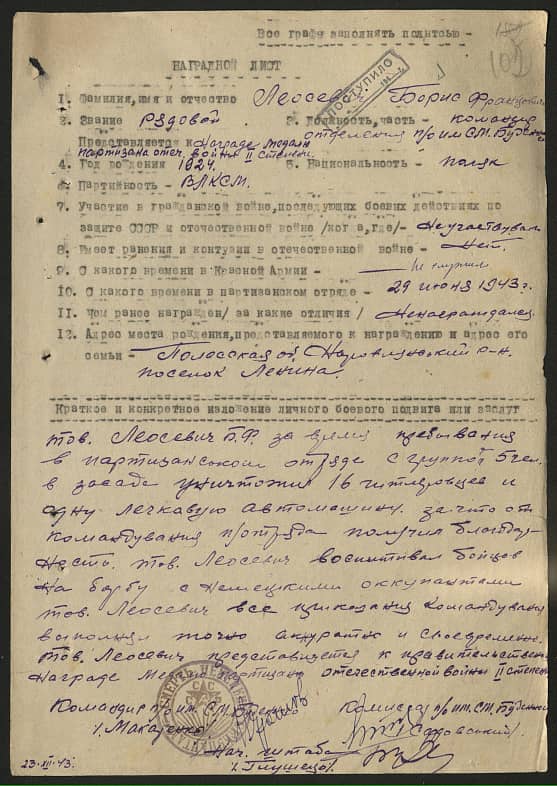 Все графы заполнять полностью -
НАГРАДНОЙ ЛИСТ
ПОСТУПИЛО
1. Фамилия, имя и отчество Леосевич Борис Францович
2. Звание рядовой 3. Должность, часть - командир
отделения п/о им С.М. Буденного
Представляется к Награде Медали
партизана отеч. войны II степени
4. Год рождения 1924. 5. Национальность - поляк
6. Партийность - ВЛКСМ.
7. Участие в гражданской войне, последующих боевых действиях по
защите СССР и отечественной войне /когда, где/- Не участвовал
8. Имеет ранения и контузии в отечественной войне - Нет.
9. С какого времени в Красной Армии - Не служил
10. С какого времени в партизанском отряде - 29 июня 1943г.
11. Чем ранее награжден/ за какие отличия / Ненаграждался
12. Адрес места рождения, представляемого к награждению и адрес его
семьи - Полесская об Наровлянский р-н.
поселок Ленина.
Краткое и конкретное изложение личного боевого подвига или заслуг
тов. Леосевич Б.Ф. за время пребывания
в партизанском отряде с группой 5 чел.
в засаде уничтожил 16 гитлеровцев и
одну легкавую автомашину. за что от
командувания п/отряда получил благодар-
ность. тов. Леосевич воспитывал бойцов
на борбу с немецкими оккупантами
тов. Леосевич все приказания командувания
выполнял точно акуратно и своевременно.
Тов. Леосевич представляется к правительственной
Награде Медали партизана отечественной войны II степени
Командир п/о им. С.М. Буденного Комиссар п/о им. С.М. Буденного
/. Макаренко / Садовский/
Нач. штаба
/. Глушец
23.XII.43.